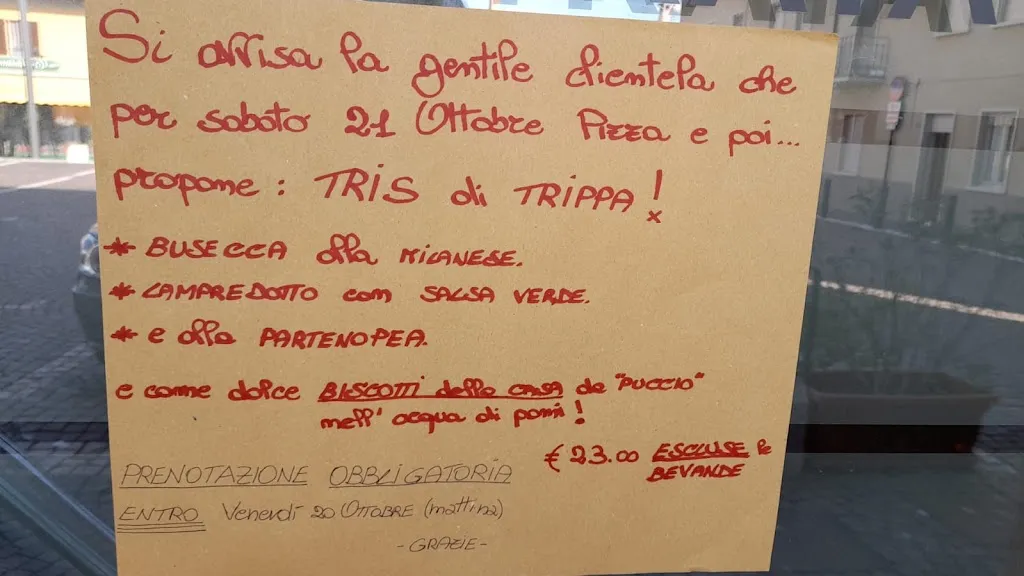 Si avvisa la gentile clientela che
per sabato 21 Ottobre Pizza e poi...
propone: TRIS di TRIPPA!
* BUSECCA alla MILANESE.
* LAMPREDOTTO con SALSA VERDE.
* e alla PARTENOPEA.
e come dolce BISCOTTI della CASA da "PUCCIO"
nell'acqua di pomi!
€ 23.00 ESCLUSE le
BEVANDE
PRENOTAZIONE OBBLIGATORIA
ENTRO Venerdì 20 OTTOBRE (mattina)
-GRAZIE-